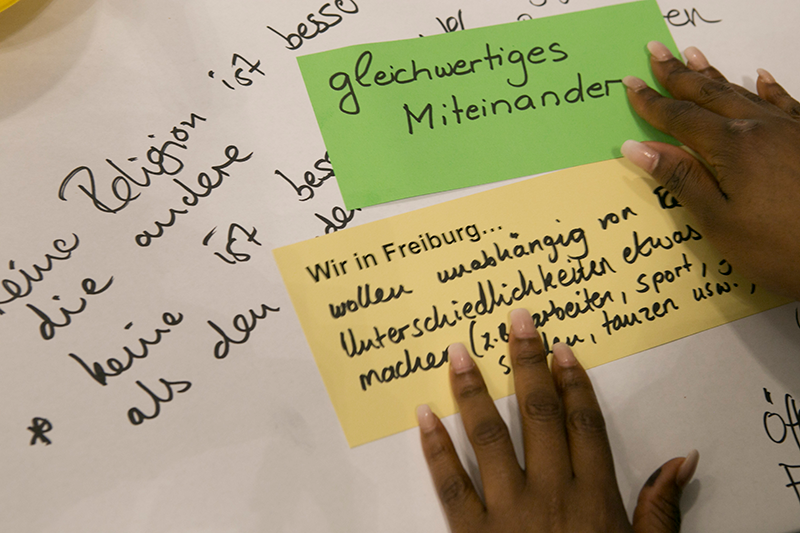 keine Religion ist besser
die andere
* keine ist
als den
gleichwertiges
Miteinander
Wir in Freiburg...
wollen unabhängig von
Unterschiedlichkeiten etwas
machen (z.B. arbeiten, sport,
tanzen usw.,